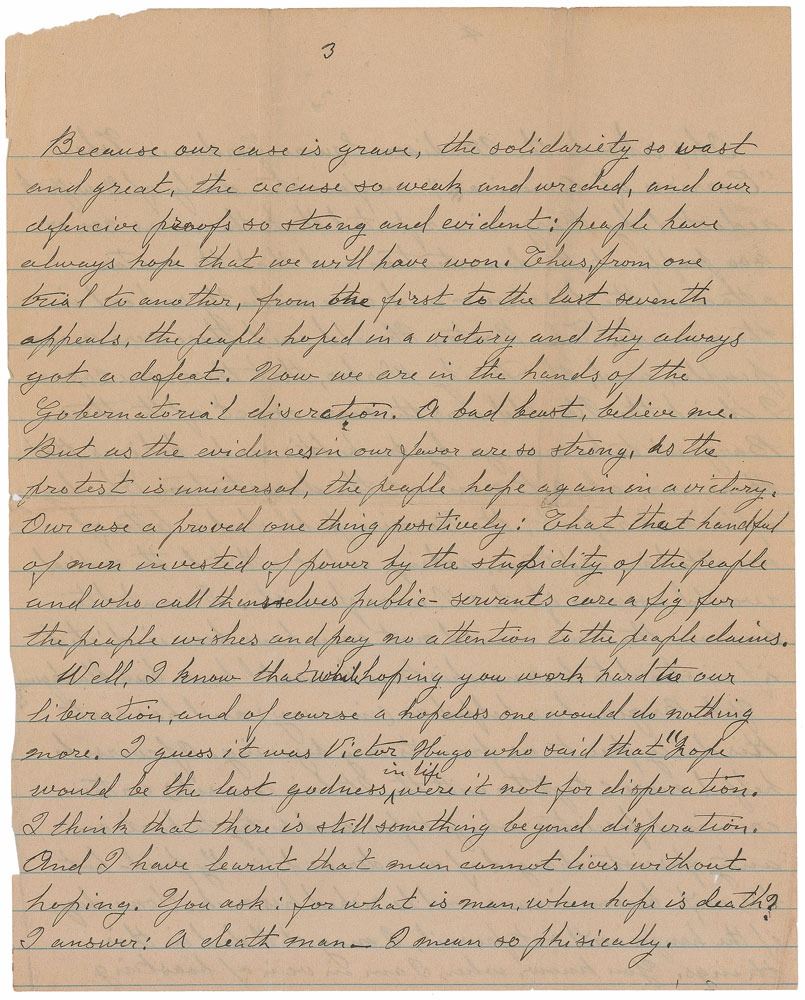 3
Because our case is grave, the solidariety so wast
and great, the accuse so weak and wreched, and our
defencive proofs so strong and evident: people have
always hope that we will have won. Thus, from one
trial to another, from the first to the last seventh
appeals, the people hoped in a victory and they always
got a defeat. Now we are in the hands of the
Gobernatorial discretion. A bad beast, believe me.
But as the evidences in our favor are so strong, as the
protest is universal, the people hope again in a victory.
Our case a proved one thing positively: That that handful
of men invested of power by the stupidity of the people
and who call themselves public-servants care a fig for
the people wishes and pay no attention to the people claims.
Well, I know that while hoping you work hard to our
liberation, and of course a hopeless one would do nothing
more. I guess it was Victor Hugo who said that "hope
would be the last godness in life, were it not for disperation.
I think that there is still something beyond disperation.
And I have learnt that man cannot lives without
hoping. You ask: for what is man, when hope is death?
I answer: A death man— I mean so phisically.